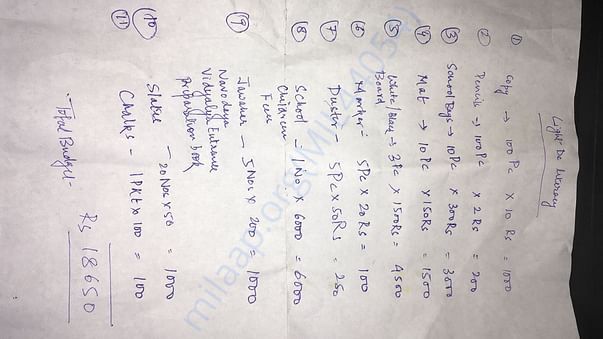 Light Da Literacy
① Copy → 100 Pc × 10 Rs = 1000
② Pencils → 100 Pc × 2 Rs = 200
③ School Bags → 10 Pc × 300 Rs = 3000
④ Mat → 10 Pc × 150 Rs = 1500
⑤ White/Black → 3 Pc × 1500 Rs = 4500
Board
⑥ Marker - 5 Pc × 20 Rs = 100
⑦ Duster - 5 Pc × 50 Rs = 250
⑧ School - 1 No × 6000 = 6000
Children
Fees
⑨ Jawahar - 5 Nos × 200 = 1000
Navodaya
Vidyalya Entrance
Preparation book
⑩ Slate - 20 Nos × 50 = 1000
⑪ Chalks - 1 Pkt × 100 = 100
Total Budget - Rs 18650